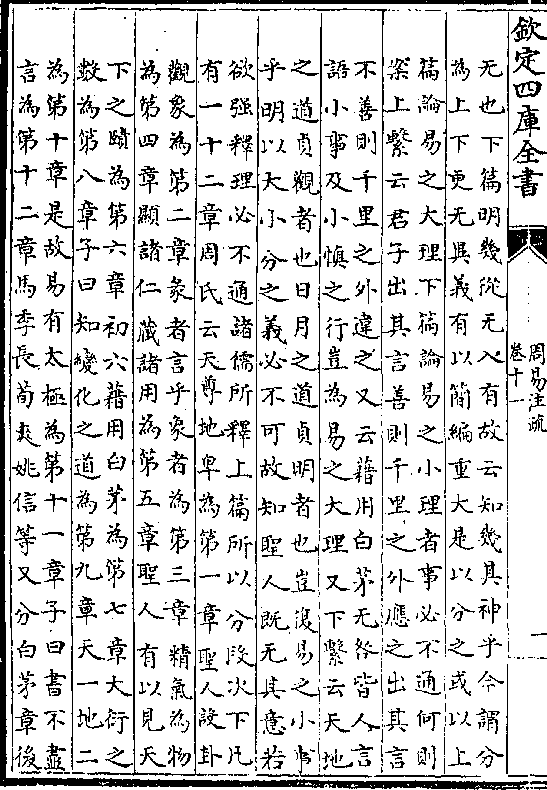 欽定四庫全書
周易注疏
卷十一
一
无也下篇明幾從无入有故云知幾其神乎今謂分
為上下更无異義有以簡編重大是以分之或以上
篇論易之大理下篇論易之小理者事必不通何則
案上繫云君子出其言善則千里之外應之出其言
不善則千里之外違之又云藉用白茅无咎皆人言
語小事及小慎之行豈為易之大理又下繫云天地
之道貞觀者也日月之道貞明者也豈復易之小事
乎明以大小分之義必不可故知聖人既无其意若
欲强釋理必不通諸儒所釋上篇所以分段次下凡
有一十二章周氏云天尊地卑為第一章聖人設卦
觀象為第二章彖者言乎象者為第三章精氣為物
為第四章顯諸仁藏諸用為第五章聖人有以見天
下之賾為第六章初六藉用白茅為第七章大衍之
數為第八章子曰知變化之道為第九章天一地二
為第十章是故易有太極為第十一章子曰書不盡
言為第十二章馬季長荀爽姚信等又分白茅章後